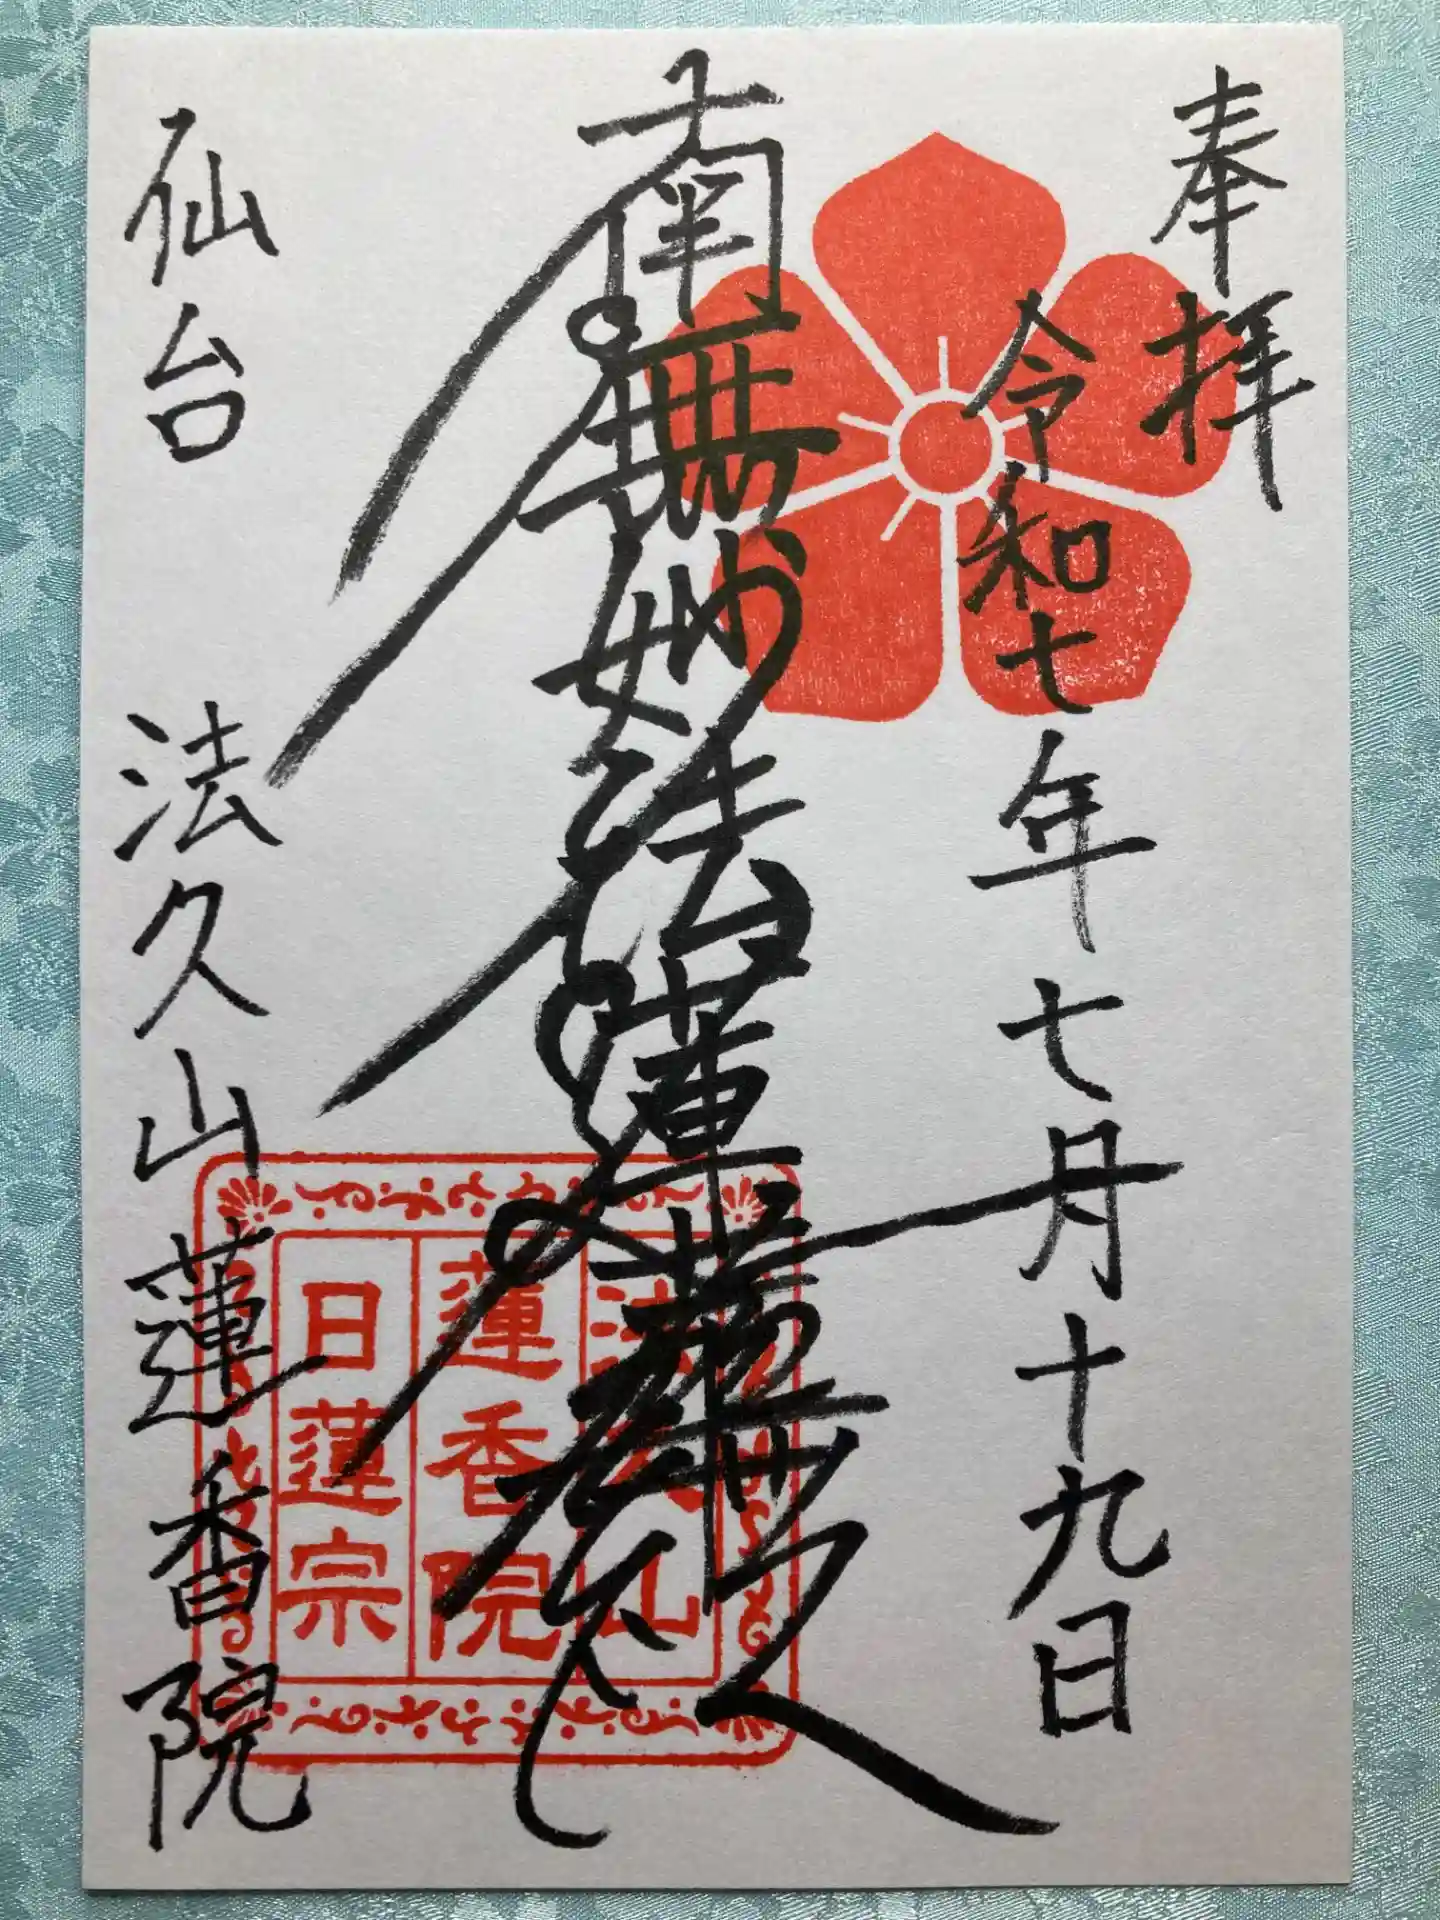 奉拝
令和七年七月十九日
南無妙法蓮華経
仙台 法久山蓮香院
法久山
蓮香院
日蓮宗